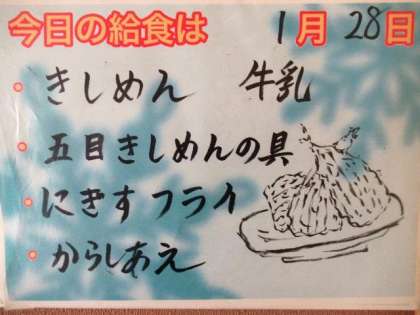 今日の給食は 1月28日
・きしめん 牛乳
・五目きしめんの具
・にきすフライ
・からしあえ